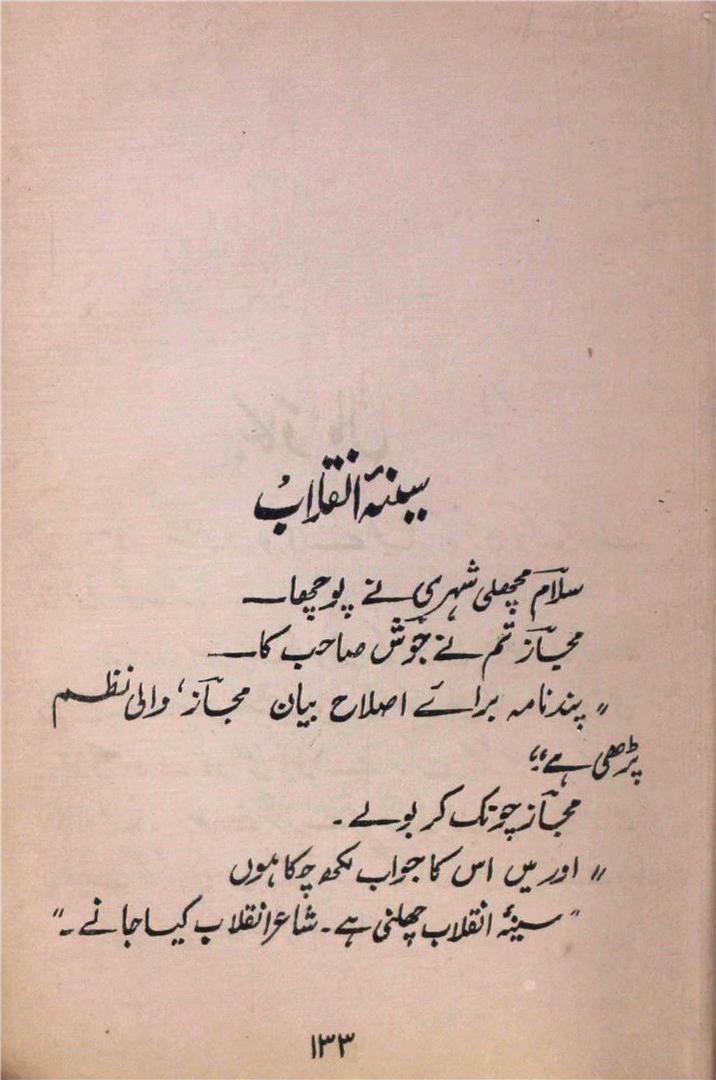 سینۂ انقلاب
سلامؔ مچھلی شہری نے پوچھا ــــ
مجازؔ تم نے جوشؔ صاحب کا ــــ
"پندنامہ برائے اصلاح بیان مجازؔ، والی نظم
پڑھی ہے"؟
مجازؔ چونک کر بولے ۔
"اور میں اس کا جواب لکھ چکا ہوں
"سینۂ انقلاب چھلنی ہے ۔ شاعرِ انقلاب کیا جانے ۔"
۱۳۳